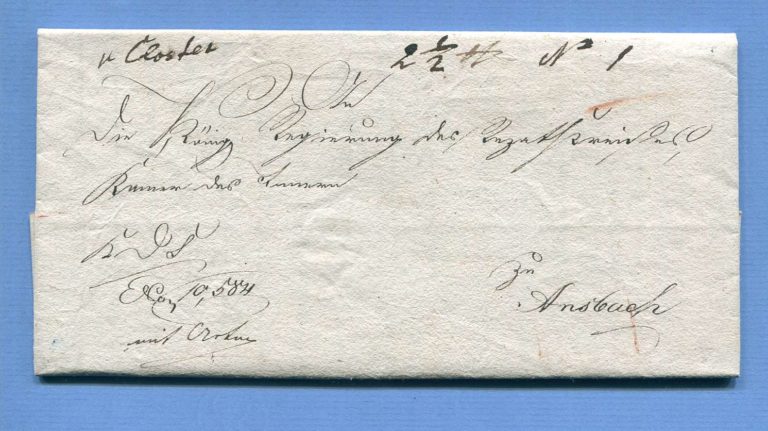 v Closter 2 1/2 ℔ No 1
An
Die Königl Regierung des Rezatkreises,
Kamer des Innern
K D S
Exp 10,584
mit Acten
zu
Ansbach